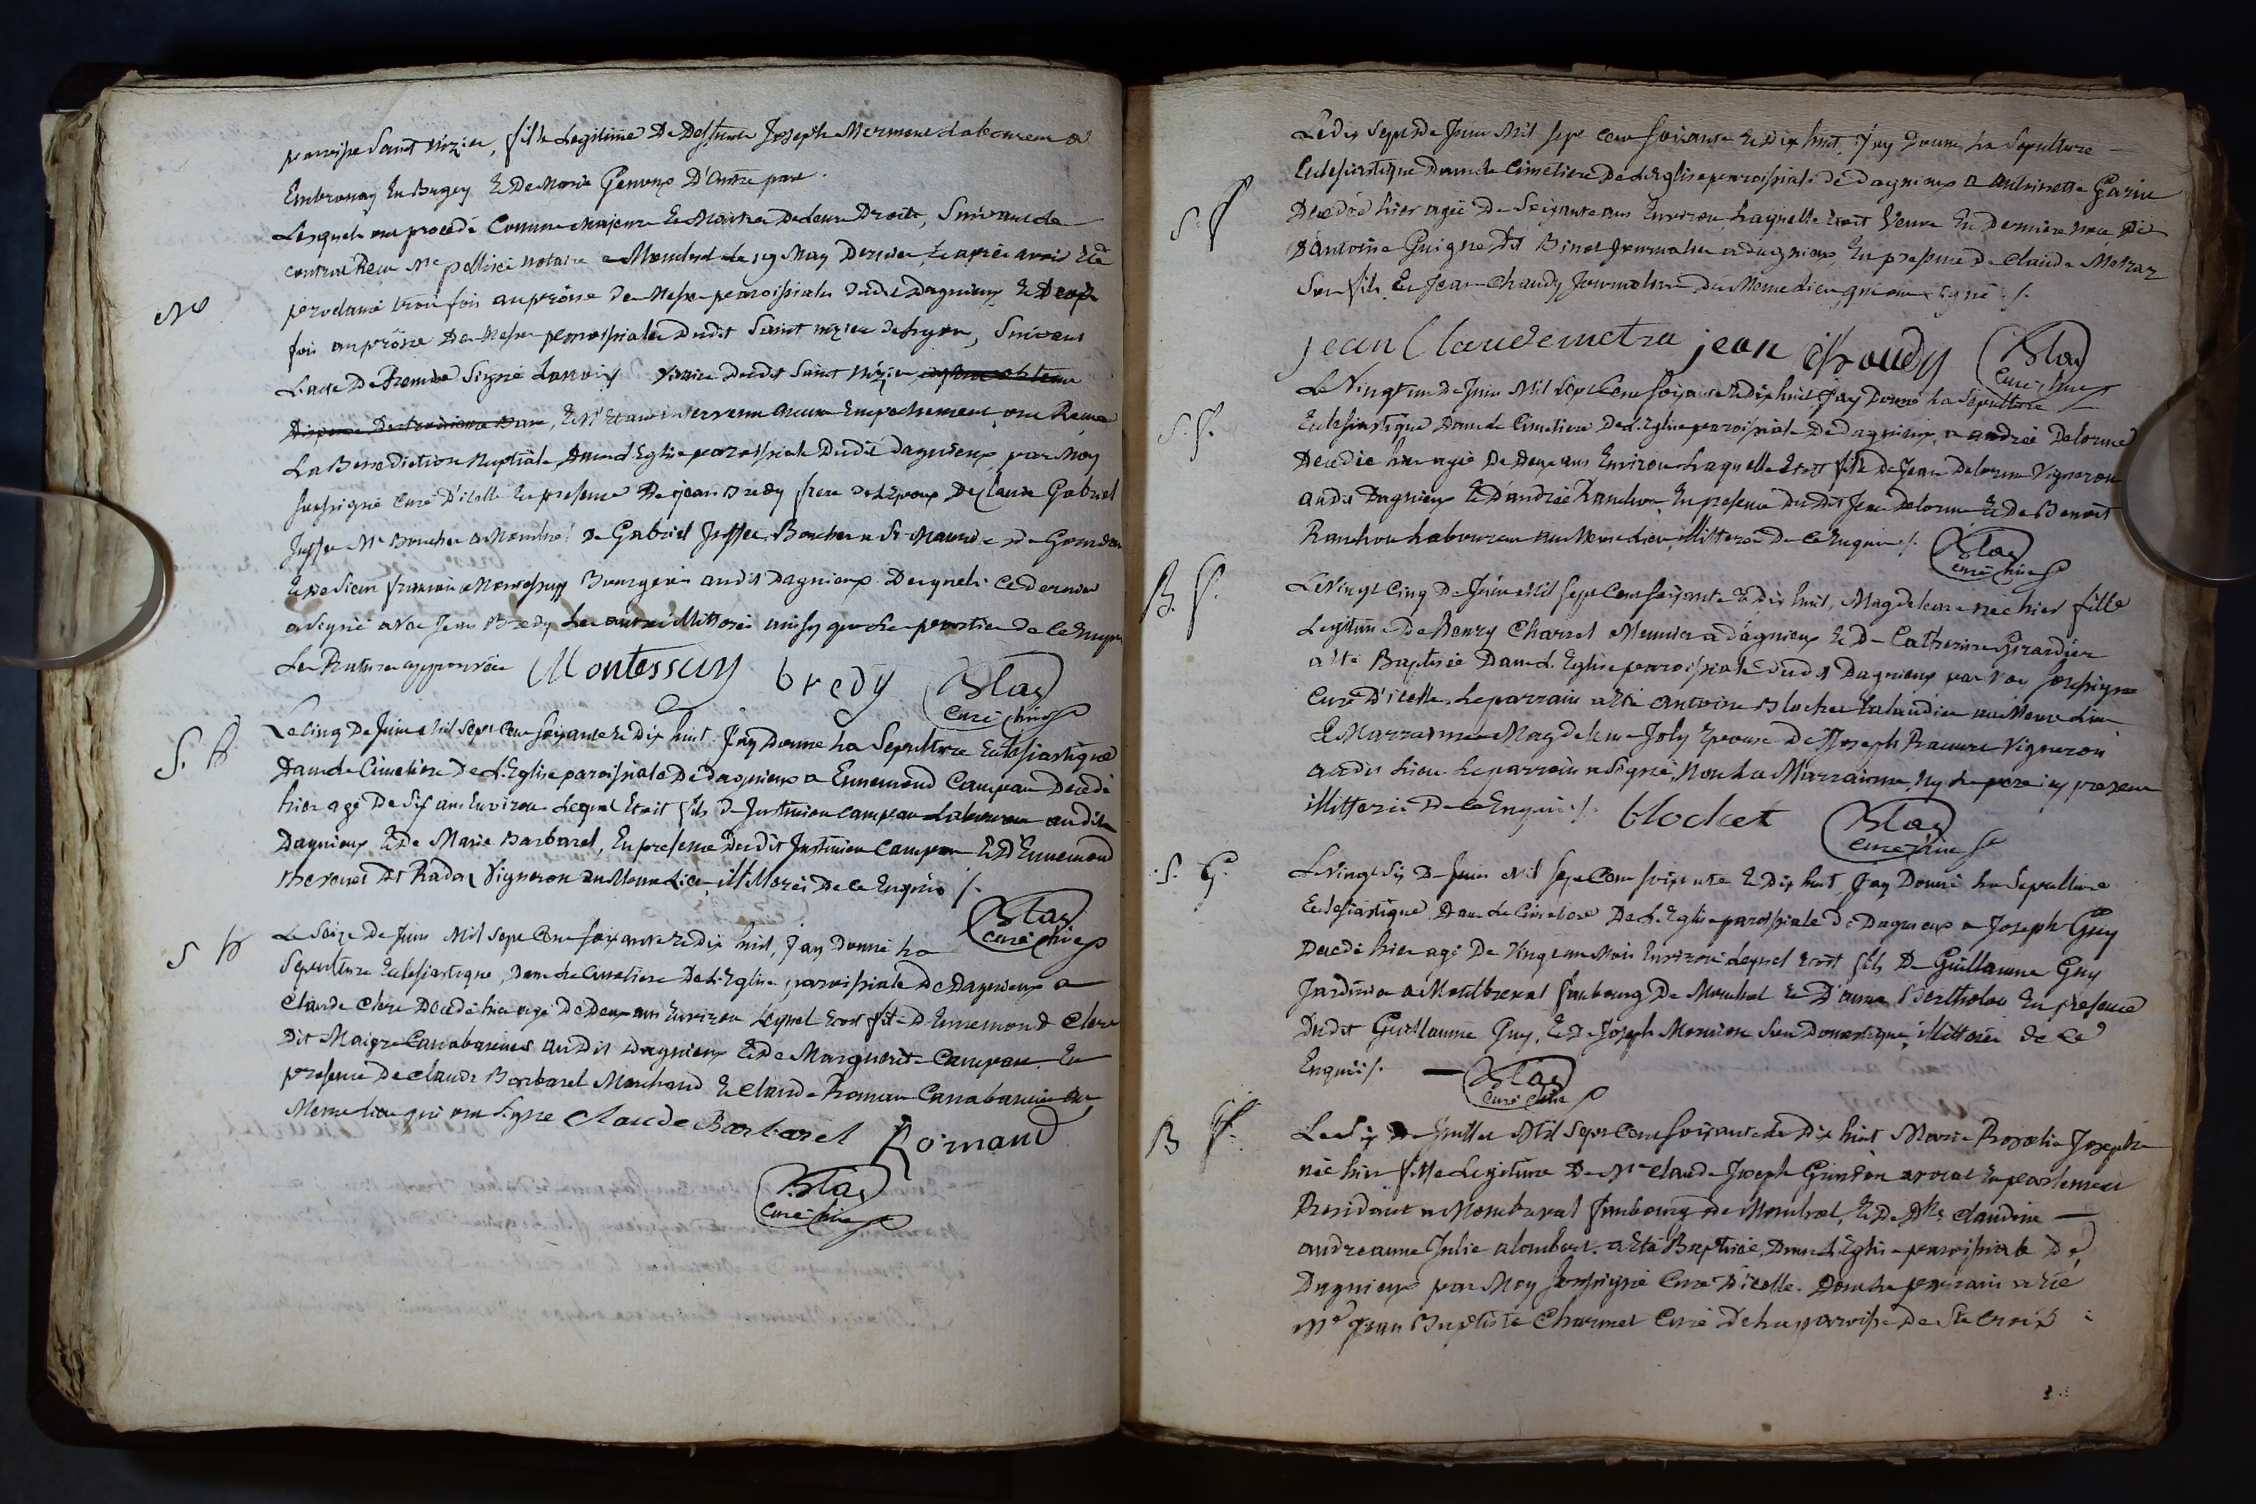 parroisse Saint nizier, fille Legitime De Deffunte Joseph Mermet Laboureur a
Embronay En Bugey & De Marie Genoux D'autre part.
Lesquels ont procedé Comme Majeurs & Maitres De leurs Droits, Suivant le
contrat Recu Me pellicier notaire a Monluel Le 19 May Dernier, & aprés avoir été
M
proclamé trois fois au prône de Messe paroissiale dudit Dagnieux & trois
fois au prône De Messe paroissiale Dudit Saint nizier de Lyon, Suivant
L'acte De Remise Signé vicaire Dudit Saint Nizier
, & N'Etant intervenu Aucun Empechement, ont Recu
La Benediction Nuptiale Dans L'Eglise paroissiale Dudit dagnieux par Moy
Soussigné Curé D'icelle En presence De jean Bredy frere de L'Epoux De Claude Gabriel
Juffet Me Boucher a Monluel De Gabriel Juffet Boucher a St Maurice de Gourdan
& De Sieur francois Montessuy Bourgeois audit Dagnieux Desquels Ce dernier
a Signé avec Jean Bredy Les autres illitterés ainsy que Les parties De Ce Enquis
La Rature approuvée Montessuy bredy Blag
Curé
S. h
Le Cinq De Juin Mil Sept Cent Soixante & Dix huit J'ay Donné La Sepulture Eclesiastique
Dans Le Cimetiere De L'Eglise paroissiale De Dagnieux a Ennemond Campeau Decedé
hier agé De Six ans Environ Lequel Etoit fils De Justinien Campeau Laboureur audit
Dagnieux & De Marie Barbarel, En presence Dudit Justinien Campeau & D'Ennemond
Dit Vigneron au Meme Lieu, illitterés De Ce Enquis /.
Blag
curé
S h
Le Seize De Juin Mil Sept Cent Soixante & Dix huit, J'ay Donné La
Sepulture Eclesiastique, Dans Le Cimetiere De L'Eglise paroissiale De Dagnieux a
Claude Clere Decedé hier agé De Deux ans Environ Lequel Etoit fils D'Ennemond Clere
Dit Maigre Canabassier audit Dagnieux & De Marguerite Campeau En
presence De Claude Barbarel Marchand & Claude Roman Canabassier au
Meme Lieu qui ont Signé Claude Barbarel Romand
Blag
Curé
Le dix Sept De Juin Mil Sept Cent Soixante & Dix huit, J'ay Donné La Sepulture
Eclesiastique Dans Le Cimetiere De L'Eglise paroissiale De Dagnieux a Antoinette Garin
S. f
Decedée hier agée De Soixante ans Environ Laquelle Etoit Veuve En Derniere noce De
D'antoine Guigne Dit Binet Journalier a dagnieux, En presence De Claude Metraz
Son fils Et Jean Chaudy Journaliers Du Meme Lieu qui ont Signé /.
jean Claude metra jean Chaudy Blag
Curé
S. f.
Le Vingt un De Juin Mil Sept Cent Soixante & Dix huit J'ay Donné La Sepulture
Eclesiastique Dans Le Cimetiere De L'Eglise paroissiale De Dagnieux, a andrée Delorme
Decedée hier agée De Deux ans Environ Laquelle Etoit fille De Jean Delorme Vigneron
audit Dagnieux & D'andrée Ranchon, En presence Du Dit Jean Delorme & De Benoit
Ranchon Laboureur au Meme Lieu, illitterés De Ce Enquis /. Blag
curé
B. f.
Le Vingt Cinq De Juin Mil Sept Cent Soixante & Dix huit, Magdeleine née hier fille
Legitime De Charvet Meunier a dagnieux & De Catherine Girardier
a Eté Baptisée Dans L'Eglise paroissiale Dudit Dagnieux par Moy Soussigné
Curé D'icelle. Le parrain a Eté Antoine Blochet au Meme Lieu
& Marraine Magdeleine Joly Epouse De Joseph Vigneron
audit Lieu. Le parrain a Signé, Non La Marraine, Ny Le pere icy present
illitterés De Ce Enquis /. blochet Blag
curé
S. G.
Le Vingt Six De Juin Mil Sept Cent Soixante & Dix huit, J'ay Donné La Sepulture
Eclesiastique, Dans Le Cimetiere De L'Eglise paroissiale De Dagnieux a Joseph Guy
Decedé hier agé De Vingt un Mois Environ Lequel Etoit fils De Guillaume Guy
Jardinier a Montbreval faubourg De Monluel & D'anne Bertholon En presence
Dudit Guillaume Guy, & De Joseph Son Domestique, illitterés de Ce
Enquis /. Blag
Curé
B f.
Le Six De Juillet Mil Sept Cent Soixante & Dix huit Marie Rosalie Josephe
née hier fille Legitime De Me Claude Joseph avocat En parlement
Residant a Montbreval faubourg De Monluel, & De Dlle Claudine
andreanne Julie alombert. a Eté Baptisée, Dans L'Eglise paroissiale De
Dagnieux par Moy Soussigné Curé D'icelle. Dont Le parrain a Eté
Me Jean Baptiste Charmet Curé De La paroisse De Ste Croix